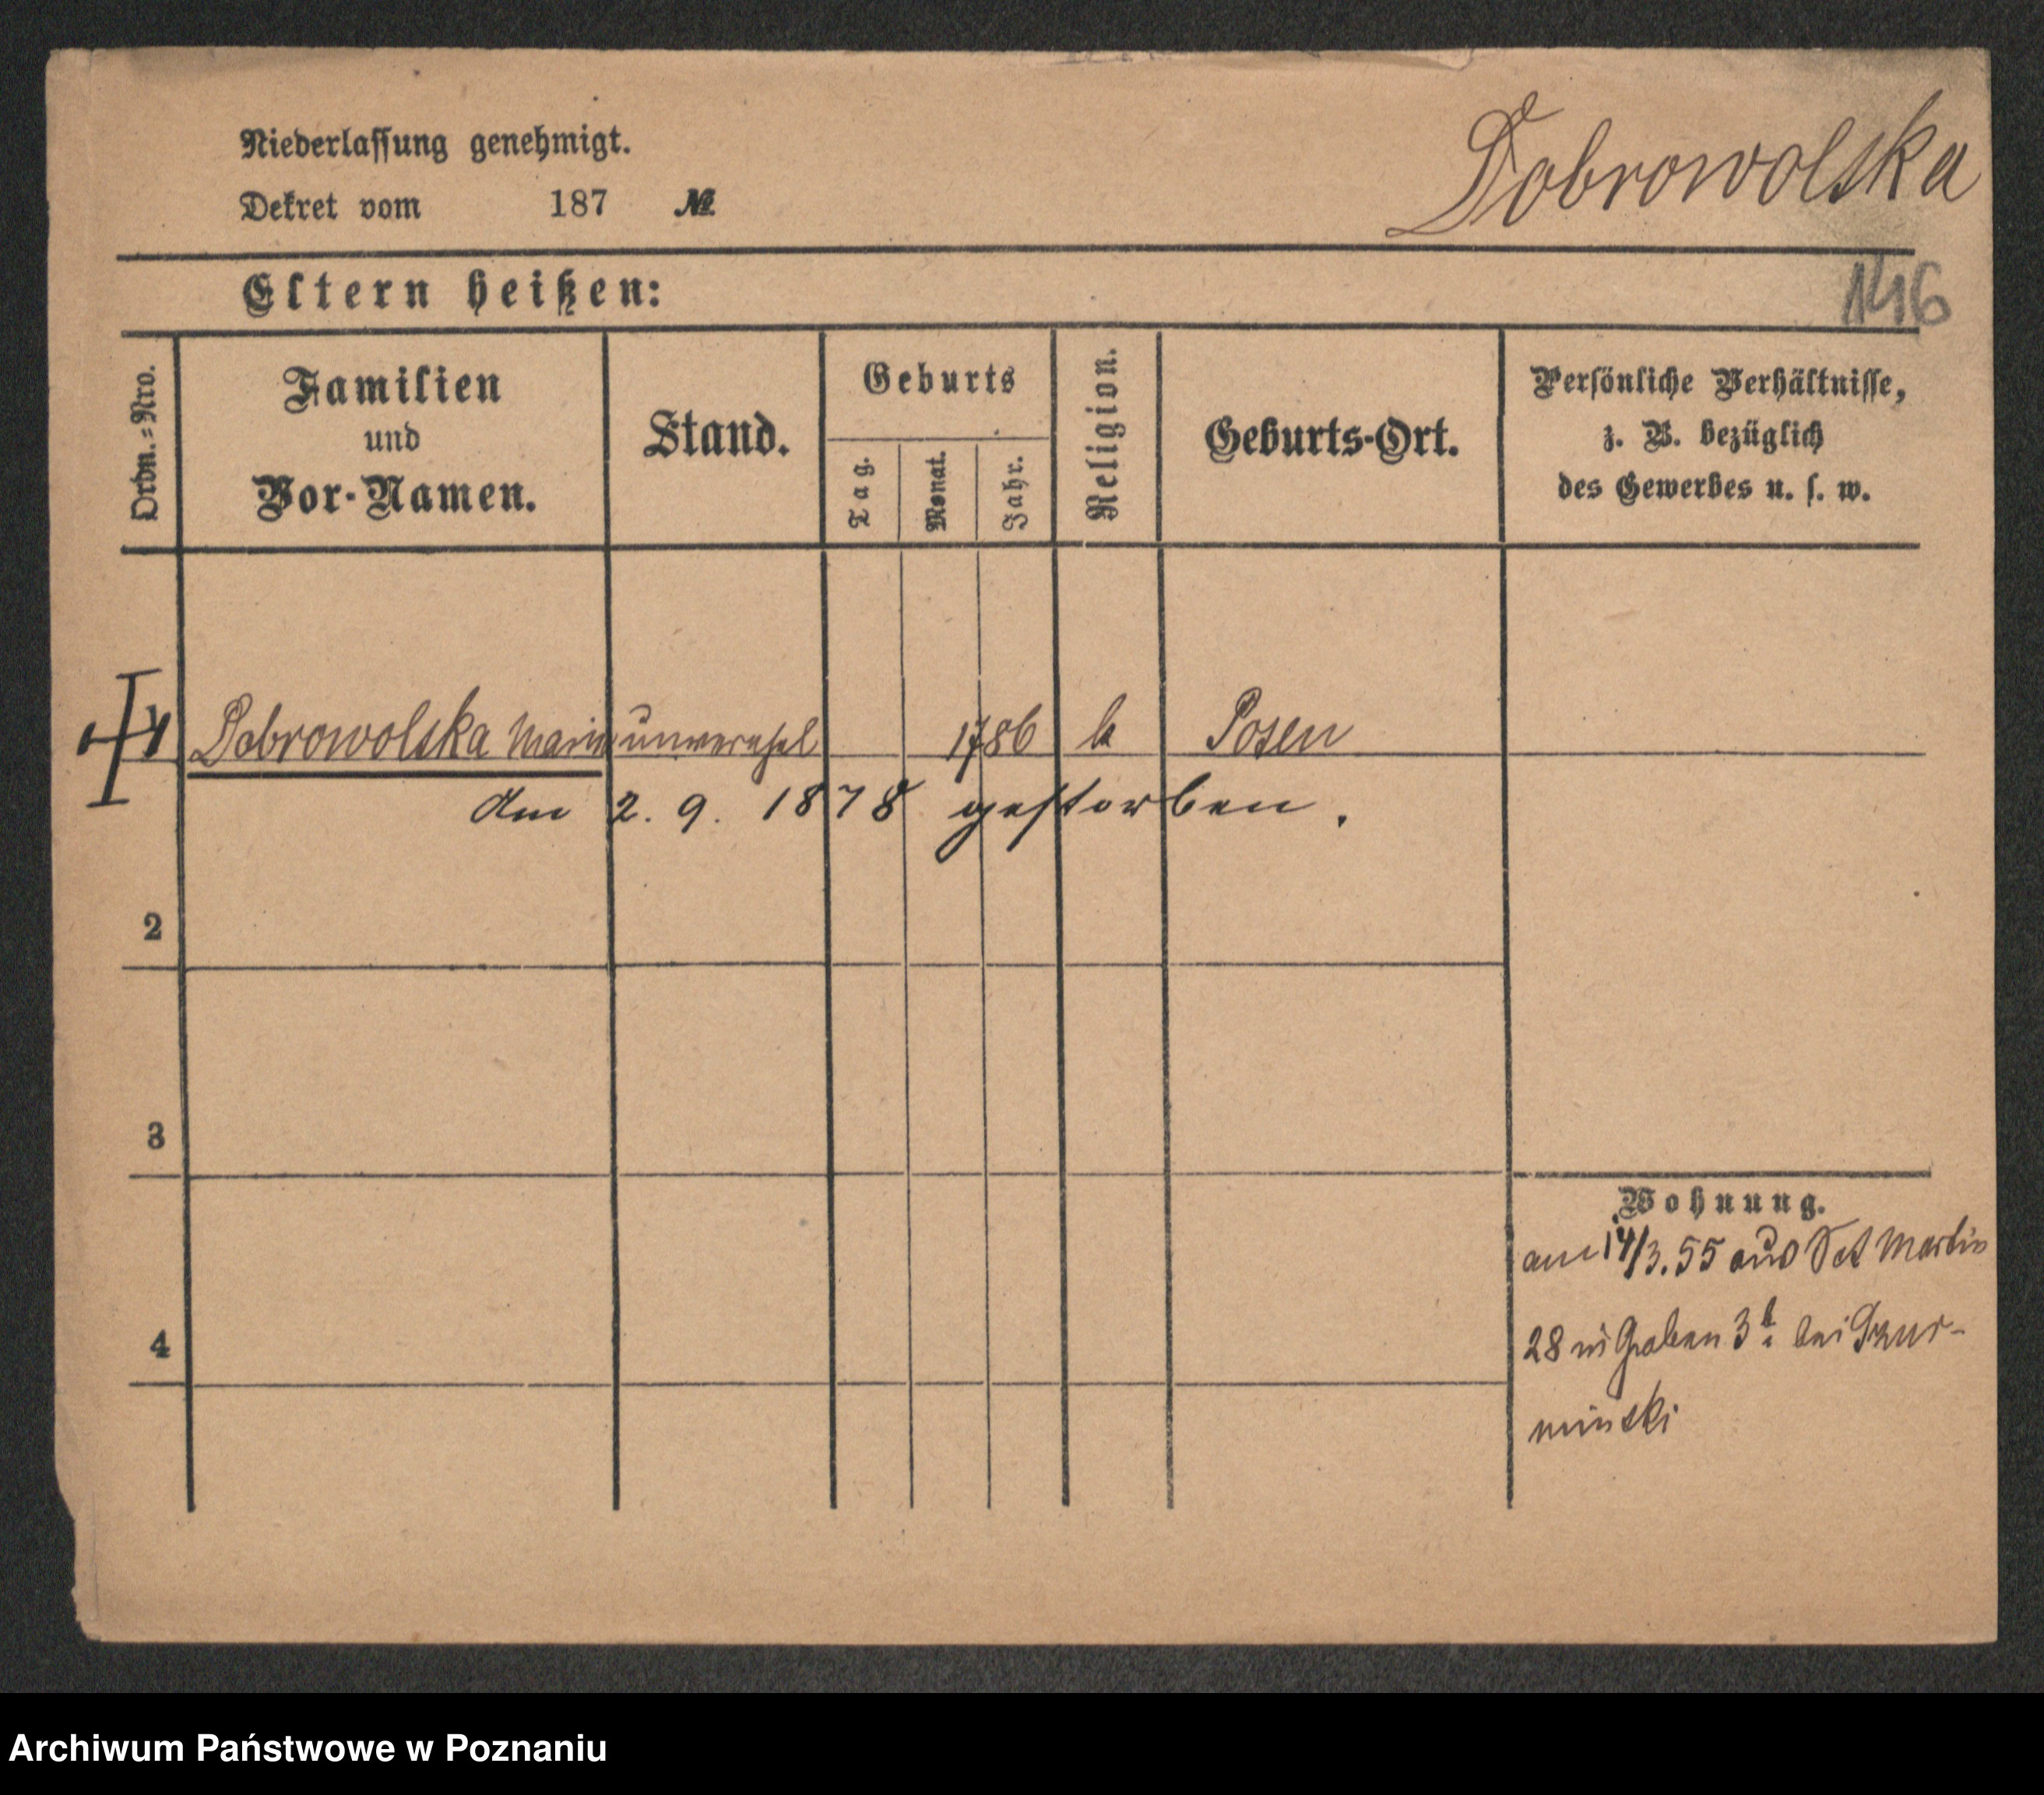 Dobrowolska
Niederlassung genehmigt.
Dekret vom 187 №
146
Eltern heißen:
Ordn.=Nro.
Familien
und
Vor-Namen.
Stand.
Geburts
Tag.
Monat.
Jahr.
Religion.
Geburts-Ort.
Persönliche Verhältnisse,
z. B. bezüglich
des Gewerbes u. s. w.
1 Dobrowolska Marie 1786 k Posen
Am 2. 9. 1878 gestorben.
2
3
4
Wohnung.
am 14/3. 55 aus Sct Martin
28 in Graben 3 bei
minski
Archiwum Państwowe w Poznaniu